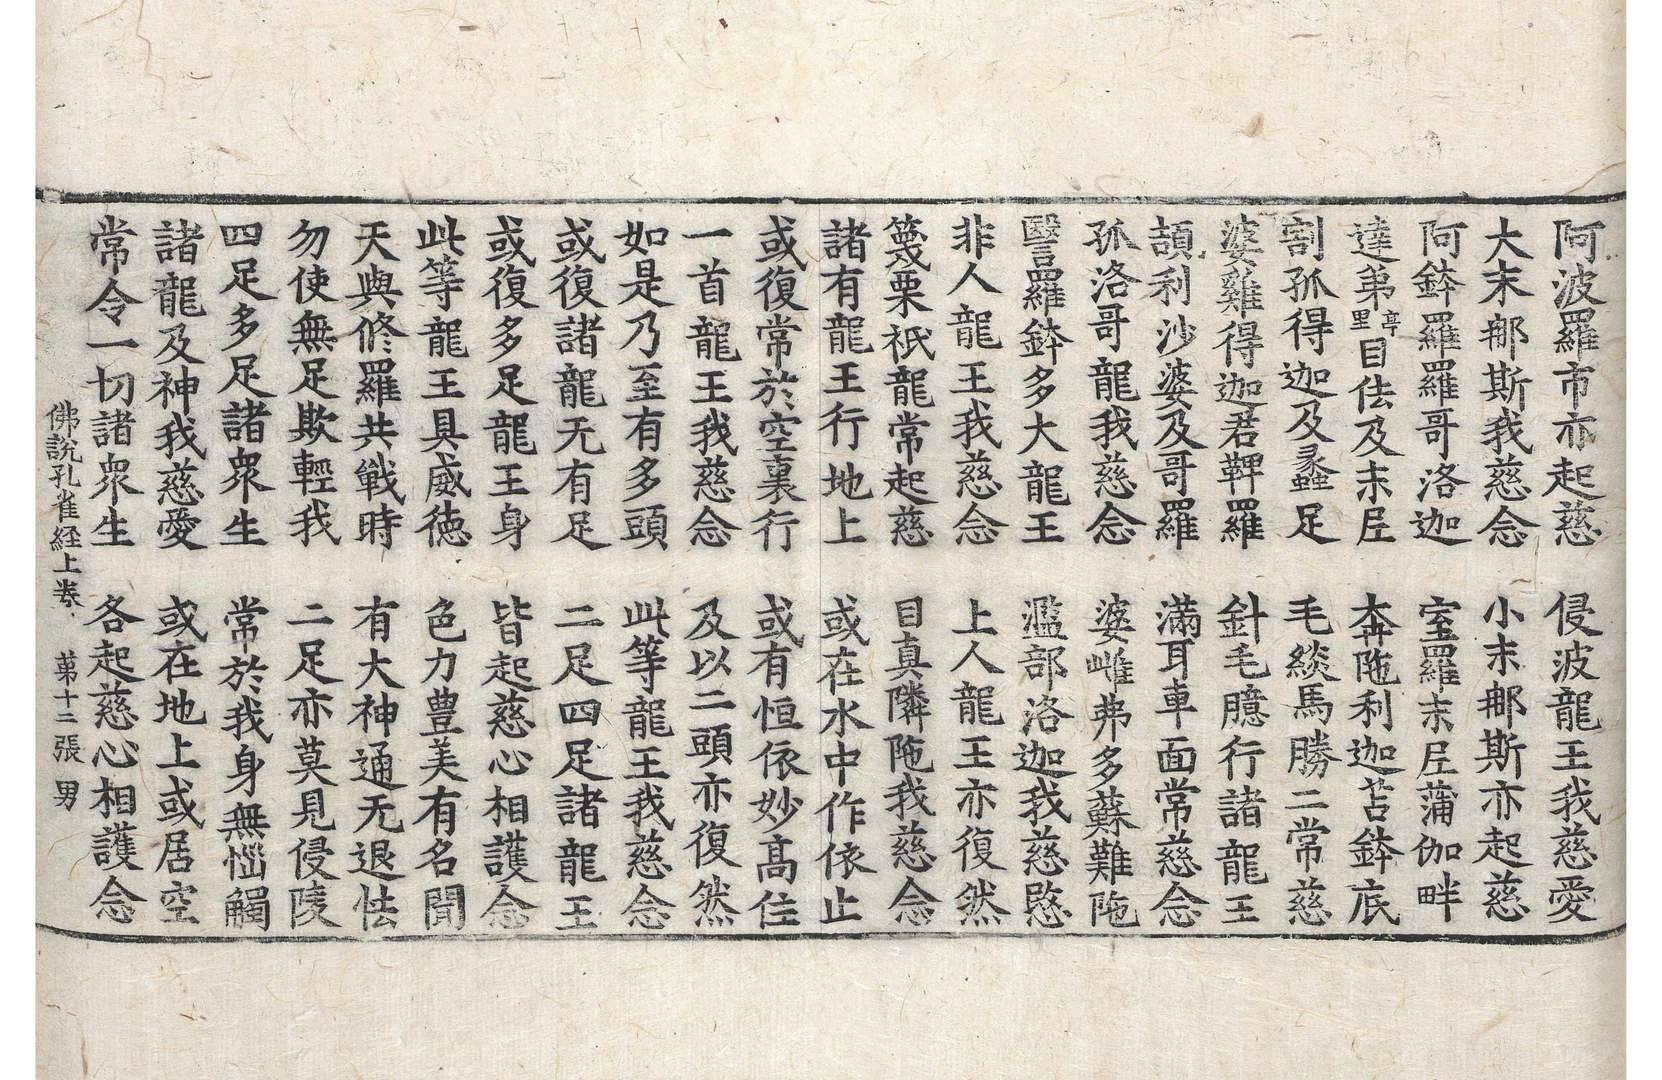 阿波羅市亦起慈　侵波龍王我慈愛
大末那斯我慈念　小末那斯亦起慈
阿鉢羅羅哥洛迦　室羅末𡰱蒲伽畔
達弟亭里目佉及末𡰱　捺陁利迦苫鉢底
割孤得迦及蠡足　毛緂馬勝二常慈
婆雞得迦君鞞羅　針毛臆行諸龍王
頡利沙婆及哥羅　滿耳車面常慈念
孤洛哥龍我慈念　婆雌弗多蘇難陁
毉羅鉢多大龍王　濫部洛迦我慈愍
非人龍王我慈念　上人龍王亦復然
篾栗祇龍常起慈　目真隣陁我慈念
諸有龍王行地上　或在水中作依止
或復常於空裏行　或有恒依妙高住
一首龍王我慈念　及以二頭亦復然
如是乃至有多頭　此等龍王我慈念
或復諸龍无有足　二足四足諸龍王
或復多足龍王身　皆起慈心相護念
此等龍王具威德　色力豊美有名聞
天與修羅共戰時　有大神通无退怯
勿使無足欺輕我　二足亦莫見侵陵
四足多足諸衆生　常於我身無惱觸
諸龍及神我慈愛　或在地上或居空
常令一切諸衆生　各起慈心相護念
佛說孔雀経上卷　苐十二張　男